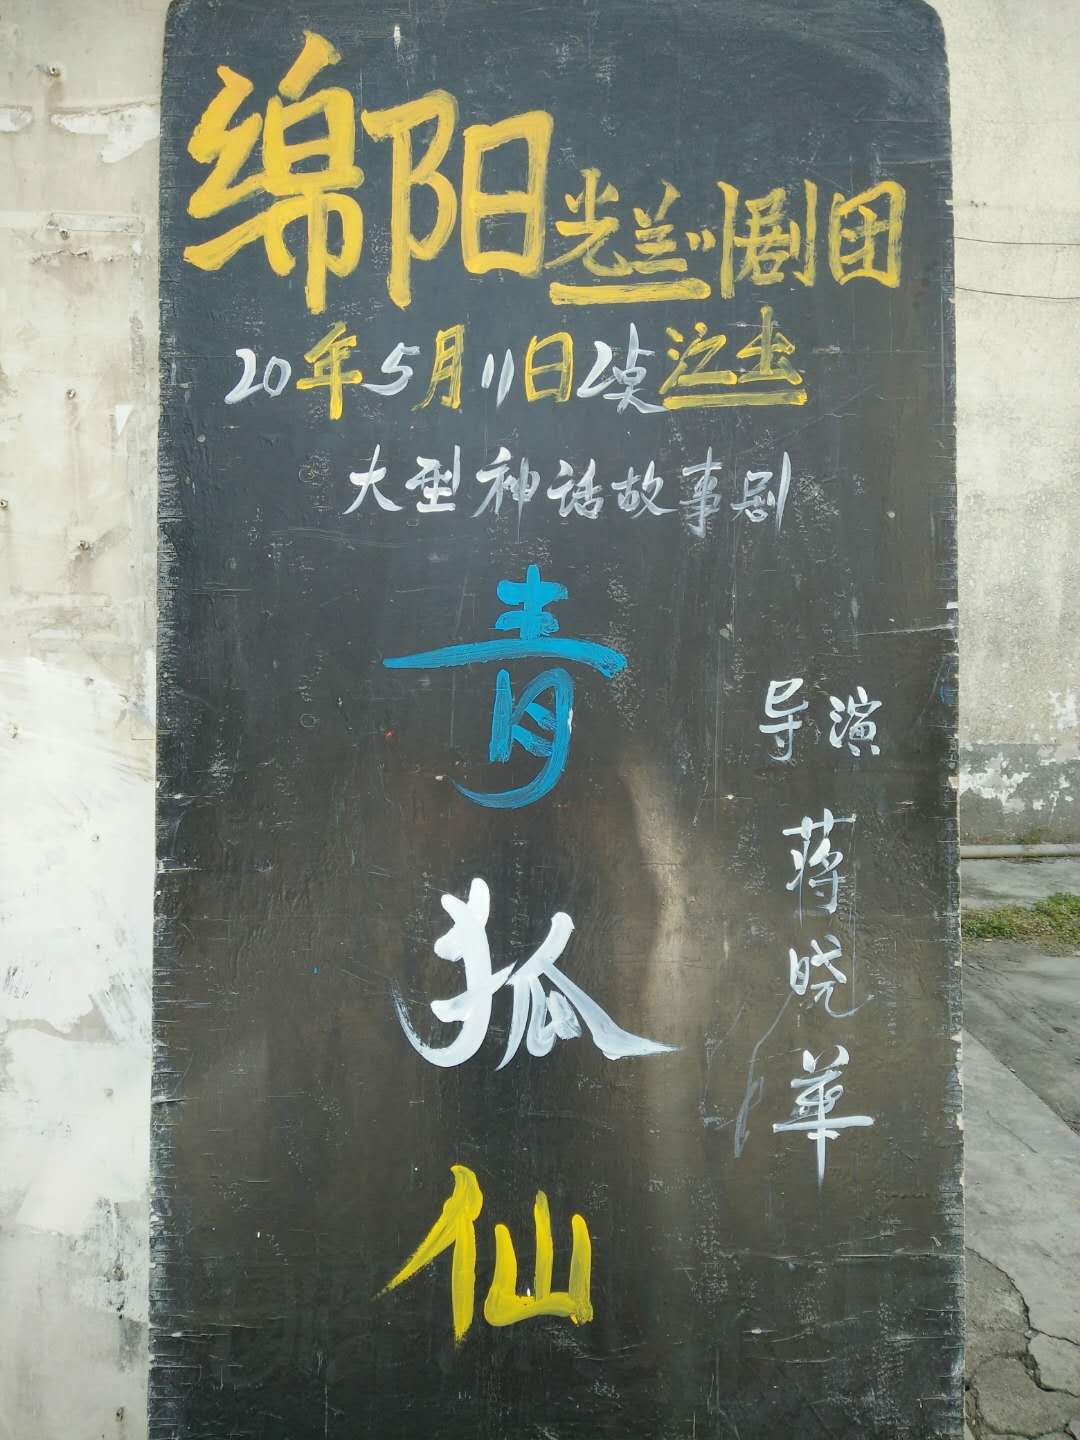 绵阳光兰川剧团
20年5月11日2点演出
大型神话故事剧
青狐仙
导演
蒋晓華